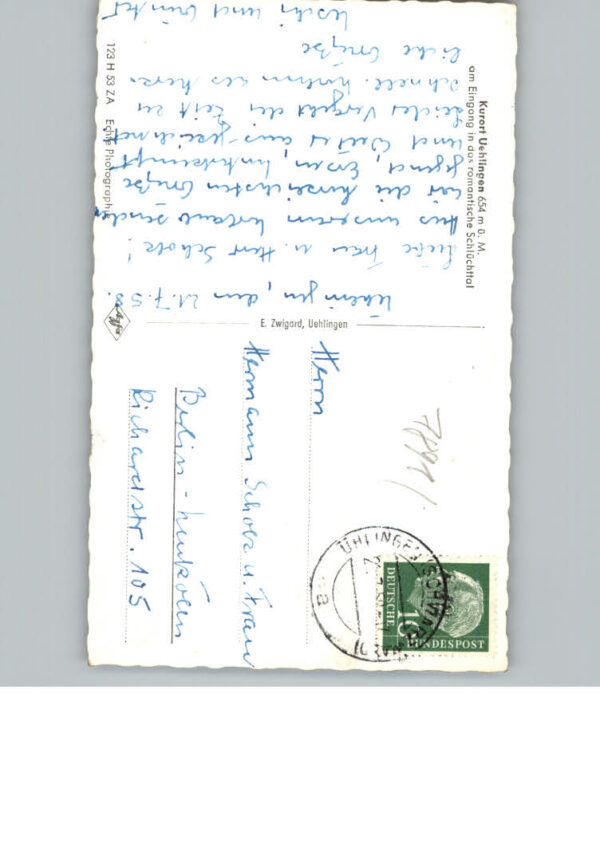 Kurort Uehlingen 654 m ü. M.
am Eingang in das romantische Schlüchttal
Ühlingen, den 21.7.58.
Liebe Frau u. Herr Scholz!
Aus unserem Urlaub senden
wir die herzlichsten Grüße
Gegend, Essen, Unterkunft
und Wetter ausgezeichnet
Leider vergeht die Zeit zu
schnell. herz-
liche Grüße
und Günter
123 H 53 ZA Echte Photographie
Agfa
E. Zwigard, Uehlingen
7891/
ÜHLINGEN (SCHWARZW)
a
DEUTSCHE
BUNDESPOST
10
Herrn
Hermann Scholz u. Frau
Berlin-Neukölln
Richardstr. 105